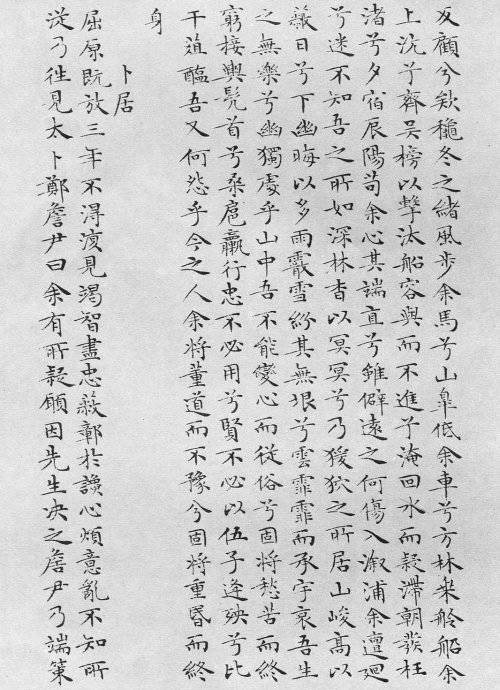 反顧兮欸穐冬之緒風步余馬兮山皐低余車兮方林乗舲船余
上沅兮齊吳榜以擊汰船容與而不進兮淹回水而疑滯朝發枉
渚兮夕宿辰陽苟余心其端直兮雖僻遠之何傷入漵浦余邅迴
兮迷不知吾之所如深林杳以冥冥兮乃猨狖之所居山峻高以
蔽日兮下幽晦以多雨霰雪紛其無垠兮雲霏霏而承宇哀吾生
之無樂兮幽獨處乎山中吾不能變心而從俗兮固將愁苦而終
窮接輿髡首兮桑扈臝行忠不必用兮賢不必以伍子逢殃兮比
干葅醢吾又何怨乎今之人余將董道而不豫兮固將重昬而終
身
卜居
屈原既放三年不得復見竭智盡忠蔽鄣於讒心煩意亂不知所
從乃往見太卜鄭詹尹曰余有所疑願因先生决之詹尹乃端策